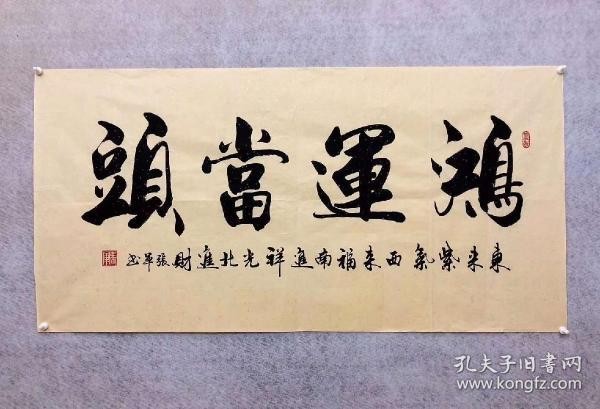 鴻運當頭
東来紫氣西来福南進祥光北進財張軍书
孔夫子旧書网
www.kongfz.com